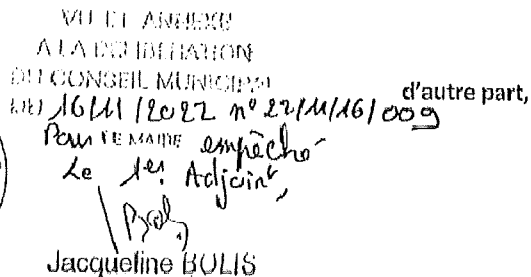 VU ET ANNEXÉ
A LA DELIBERATION
DU CONSEIL MUNICIPAL
d'autre part,
DU 16/11/2022 n° 22/11/16/009
Pour LE MAIRE empêché
Le 1er Adjoint,
Jacqueline BULIS